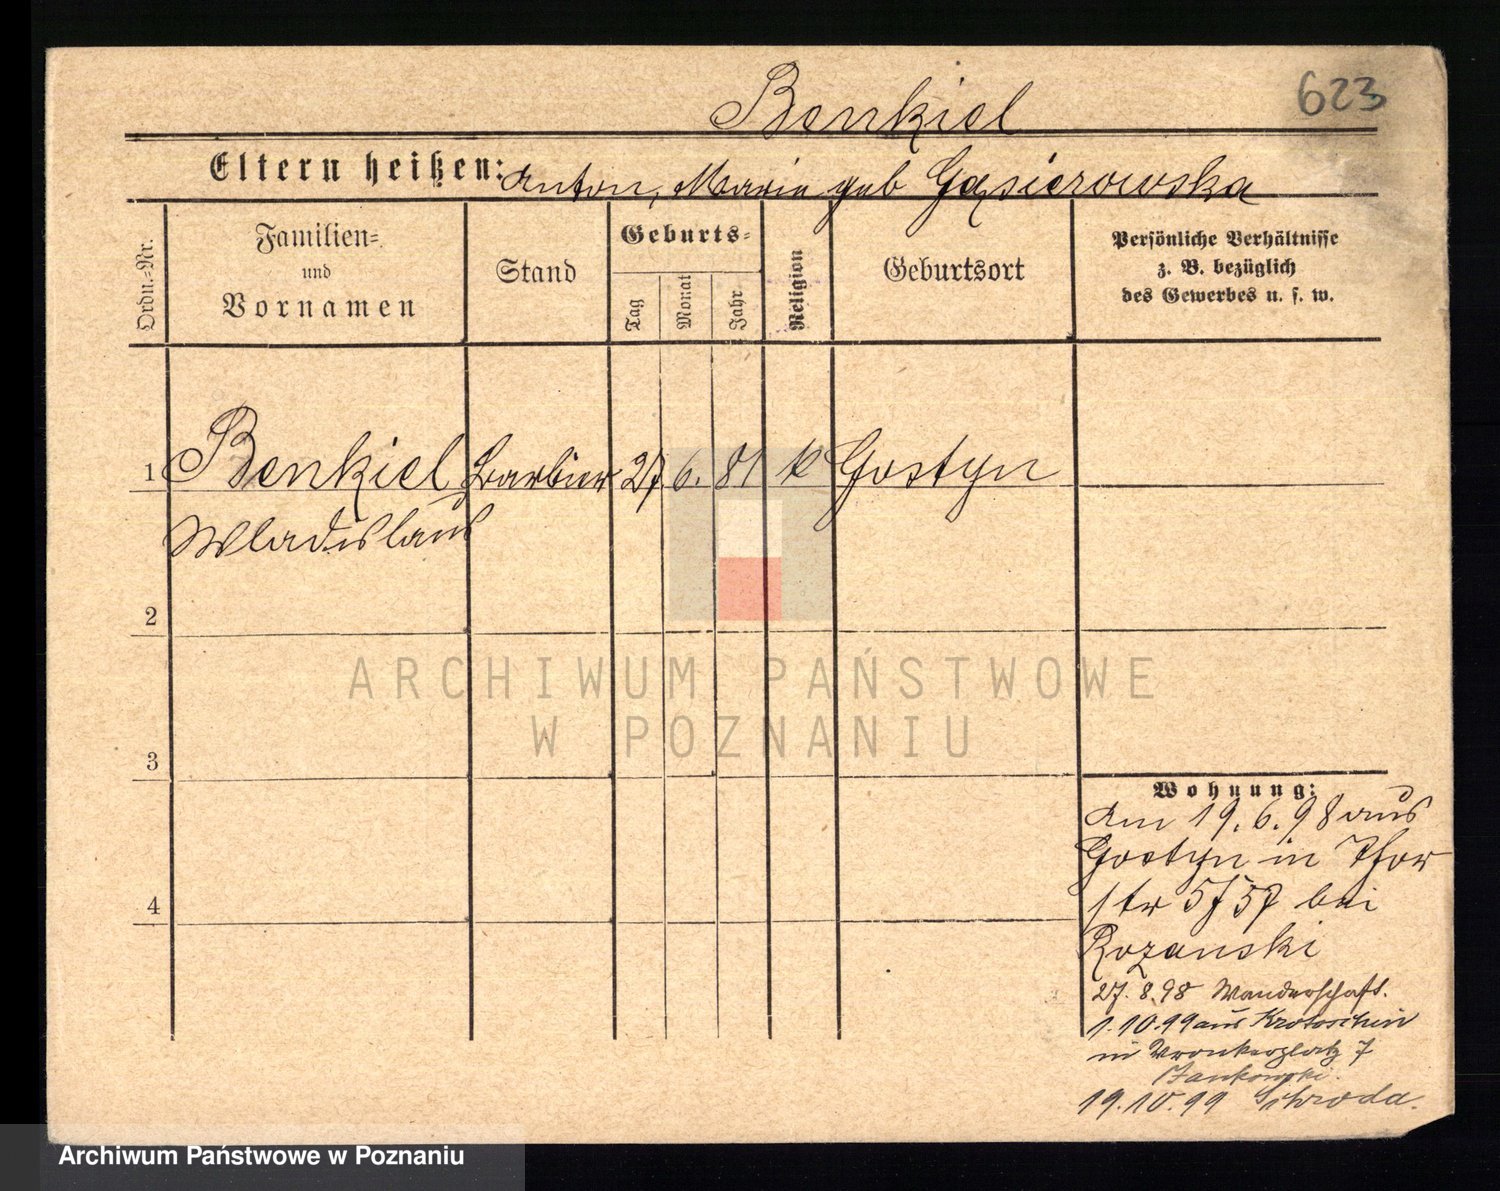 623
Benkiel
Eltern heißen: Anton, Marie geb Gąsierowska
Ordn.-Nr.
Familien-
und
Vornamen
Stand
Geburts-
Tag
Monat
Jahr
Religion
Geburtsort
Persönliche Verhältnisse
z. B. bezüglich
des Gewerbes u. s. w.
1 Benkiel Barbier 27. 6. 81 k Gostyn
Wladislaus
2
3
4
Wohnung:
Am 19.6.98 aus
Gostyn in Thor
str 57 bei
Rozanski
27.8.98 Wanderschaft.
1.10.99 aus Krotoschin
in Wronkerplatz 7
Jankowski.
19.10.99 Schroda.
ARCHIWUM PAŃSTWOWE
W POZNANIU
Archiwum Państwowe w Poznaniu